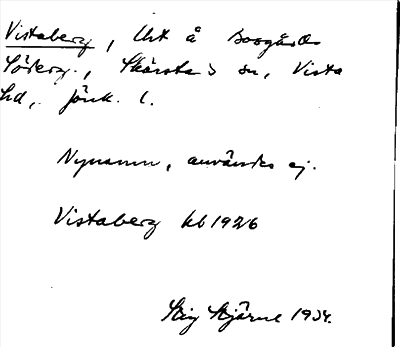 Vistaberg, lht å Boogårds
Söderg., Skärstads sn, Vista
hd, Jönk. l.
Nynamn, användes ej.
Vistaberg kb 1926
Stig Stjärne 1934.